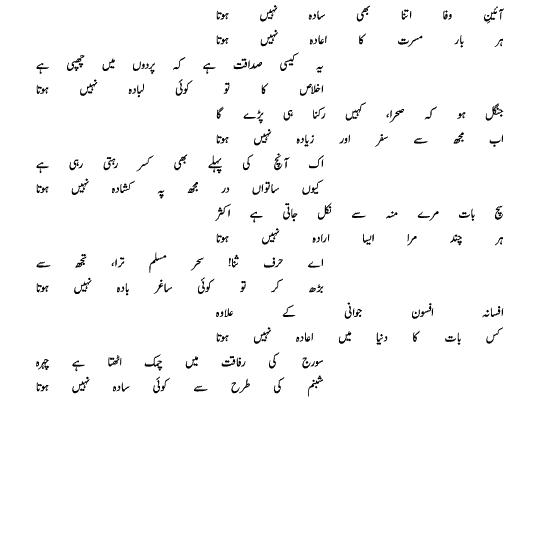 آئینِ وفا اتنا بھی سادہ نہیں ہوتا
ہر بار مسرت کا اعادہ نہیں ہوتا
یہ کیسی صداقت ہے کہ پردوں میں چھپی ہے
اخلاص کا تو کوئی لبادہ نہیں ہوتا
جنگل ہو کہ صحرا، کہیں رکنا ہی پڑے گا
اب مجھ سے سفر اور زیادہ نہیں ہوتا
اک آنچ کی پہلے بھی کسر رہتی رہی ہے
کیوں ساتواں در مجھ پہ کشادہ نہیں ہوتا
سچ بات مرے منہ سے نکل جاتی ہے اکثر
ہر چند مرا ایسا ارادہ نہیں ہوتا
اے حرف ثنا! سحر مسلم ترا، تجھ سے
بڑھ کر تو کوئی ساغر بادہ نہیں ہوتا
افسانہ افسون جوانی کے علاوہ
کس بات کا دنیا میں اعادہ نہیں ہوتا
سورج کی رفاقت میں چمک اٹھتا ہے چہرہ
شبنم کی طرح سے کوئی سادہ نہیں ہوتا